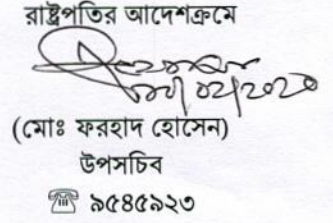 রাষ্ট্রপতির আদেশক্রমে
(মোঃ ফরহাদ হোসেন)
উপসচিব
☎ ৯৫৪৫৯২৩